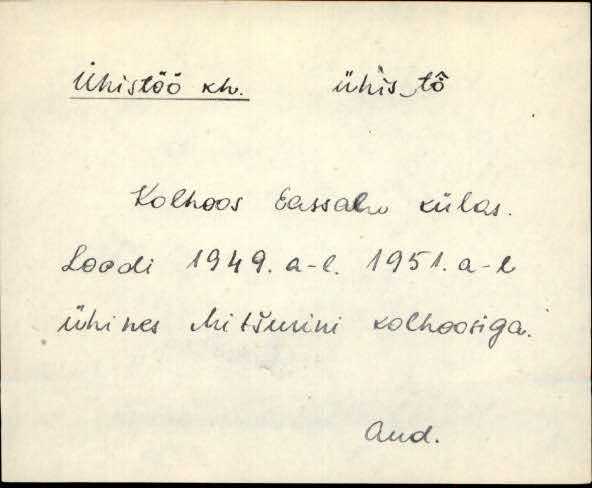 Ühistöö kh. ühis_tö̂
Kolhoos Eassalu külas.
Loodi 1949. a-l. 1951. a-l
ühines Mitšurini kolhoosiga.
Aud.